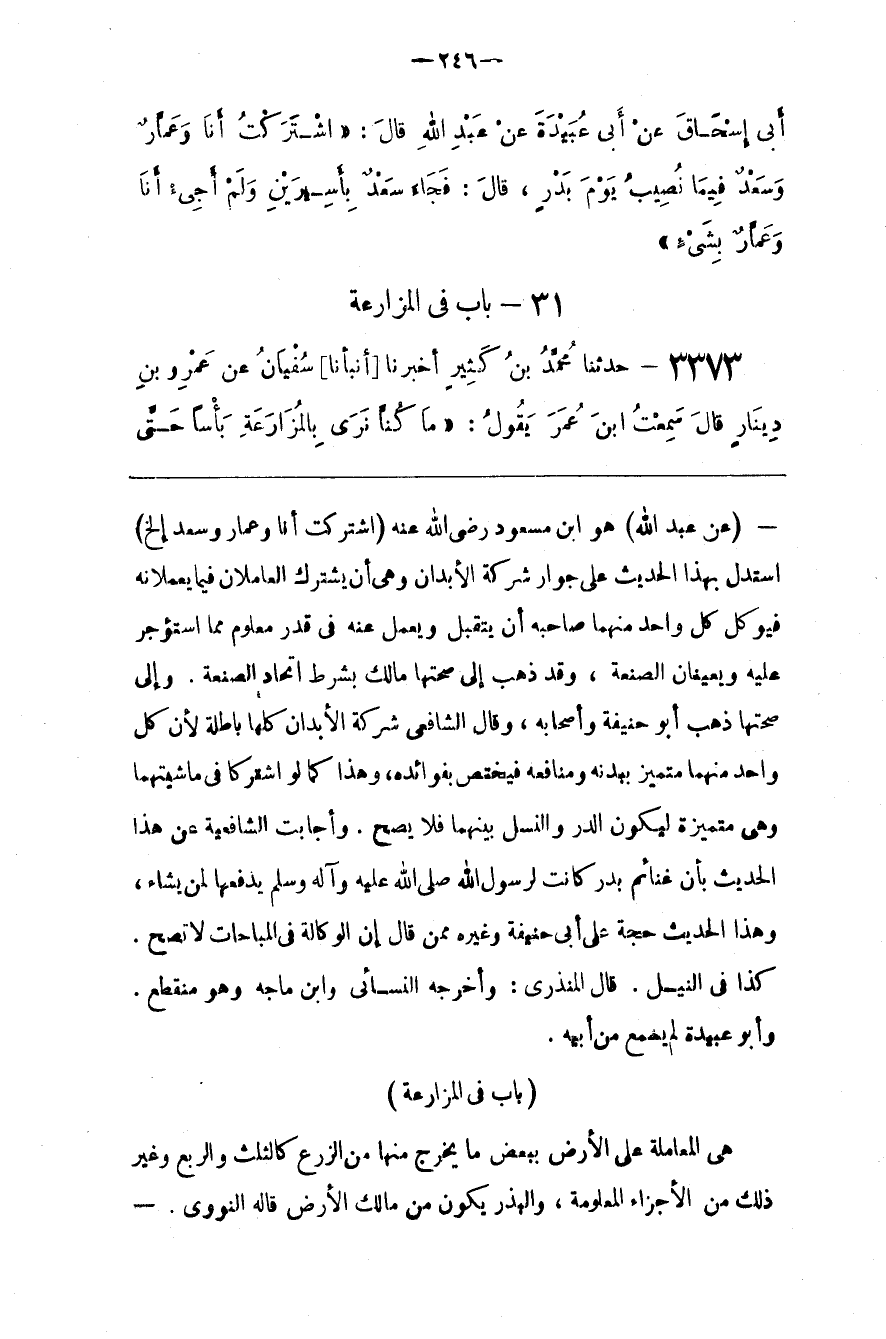 —٢٤٦—
أَبِى إِسْحَـاقَ عن أَبى عُبَيْدَةَ عنْ عَبْدِ اللهِ قالَ : « اشْـتَرَكْتُ أَنَا وَعَمَّارٌ
وَسَعْدٌ فِيمَا نُصِيبُ يَوْمَ بَدْرٍ ، قالَ : فَجَاءَ سَعْدٌ بِأَسِـيرَيْنِ وَلَمْ أَجِىءْ أَنَا
وَعَمَّارٌ بِشَىْءٍ »
٣١ — باب فى المزارعة
٣٣٧٣ — حدثنا مُحَمَّدُ بنُ كَثِيرٍ أخبرنا [أنبأنا] سُفْيَانُ عن عَمْرِو بنِ
دِينَارٍ قالَ سَمِعْتُ ابنَ عُمَرَ يَقُولُ : « ما كُنَّا نَرَى بِالْمُزَارَعَةِ بَأْساً حَـتَّى
— (عن عبد الله) هو ابن مسعود رضى الله عنه (اشتركت أنا وعمار وسعد إلخ)
استدل بهذا الحديث على جوار شركة الأبدان وهى أن يشترك العاملان فيما يعملانه
فيوكل كل واحد منهما صاحبه أن يتقبل ويعمل عنه فى قدر معلوم مما استؤجر
عليه ويعيفان الصنعة ، وقد ذهب إلى صحتها مالك بشرط اتحاد الصنعة . وإلى
صحتها ذهب أبو حنيفة وأصحابه ، وقال الشافعى شركة الأبدان كلها باطلة لأن كل
واحد منهما متميز ببدنه ومنافعه فيختص بفوائده، وهذا كما لو اشتركا فى ماشيتهما
وهى متميزة ليكون الدر والنسل بينهما فلا يصح . وأجابت الشافعية عن هذا
الحديث بأن غنائم بدر كانت لرسول الله صلى الله عليه وآله وسلم يدفعها لمن يشاء ،
وهذا الحديث حجة على أبى حنيفة وغيره ممن قال إن الوكالة فى المباحات لا تصح .
كذا فى النيـل . قال المنذرى : وأخرجه النسـائى وابن ماجه وهو منقطع .
وأبو عبيدة لم يسمع من أبيه .
( باب فى المزارعة )
هى المعاملة على الأرض ببعض ما يخرج منها من الزرع كالثلث والربع وغير
ذلك من الأجزاء المعلومة ، والبذر يكون من مالك الأرض قاله النووى . —